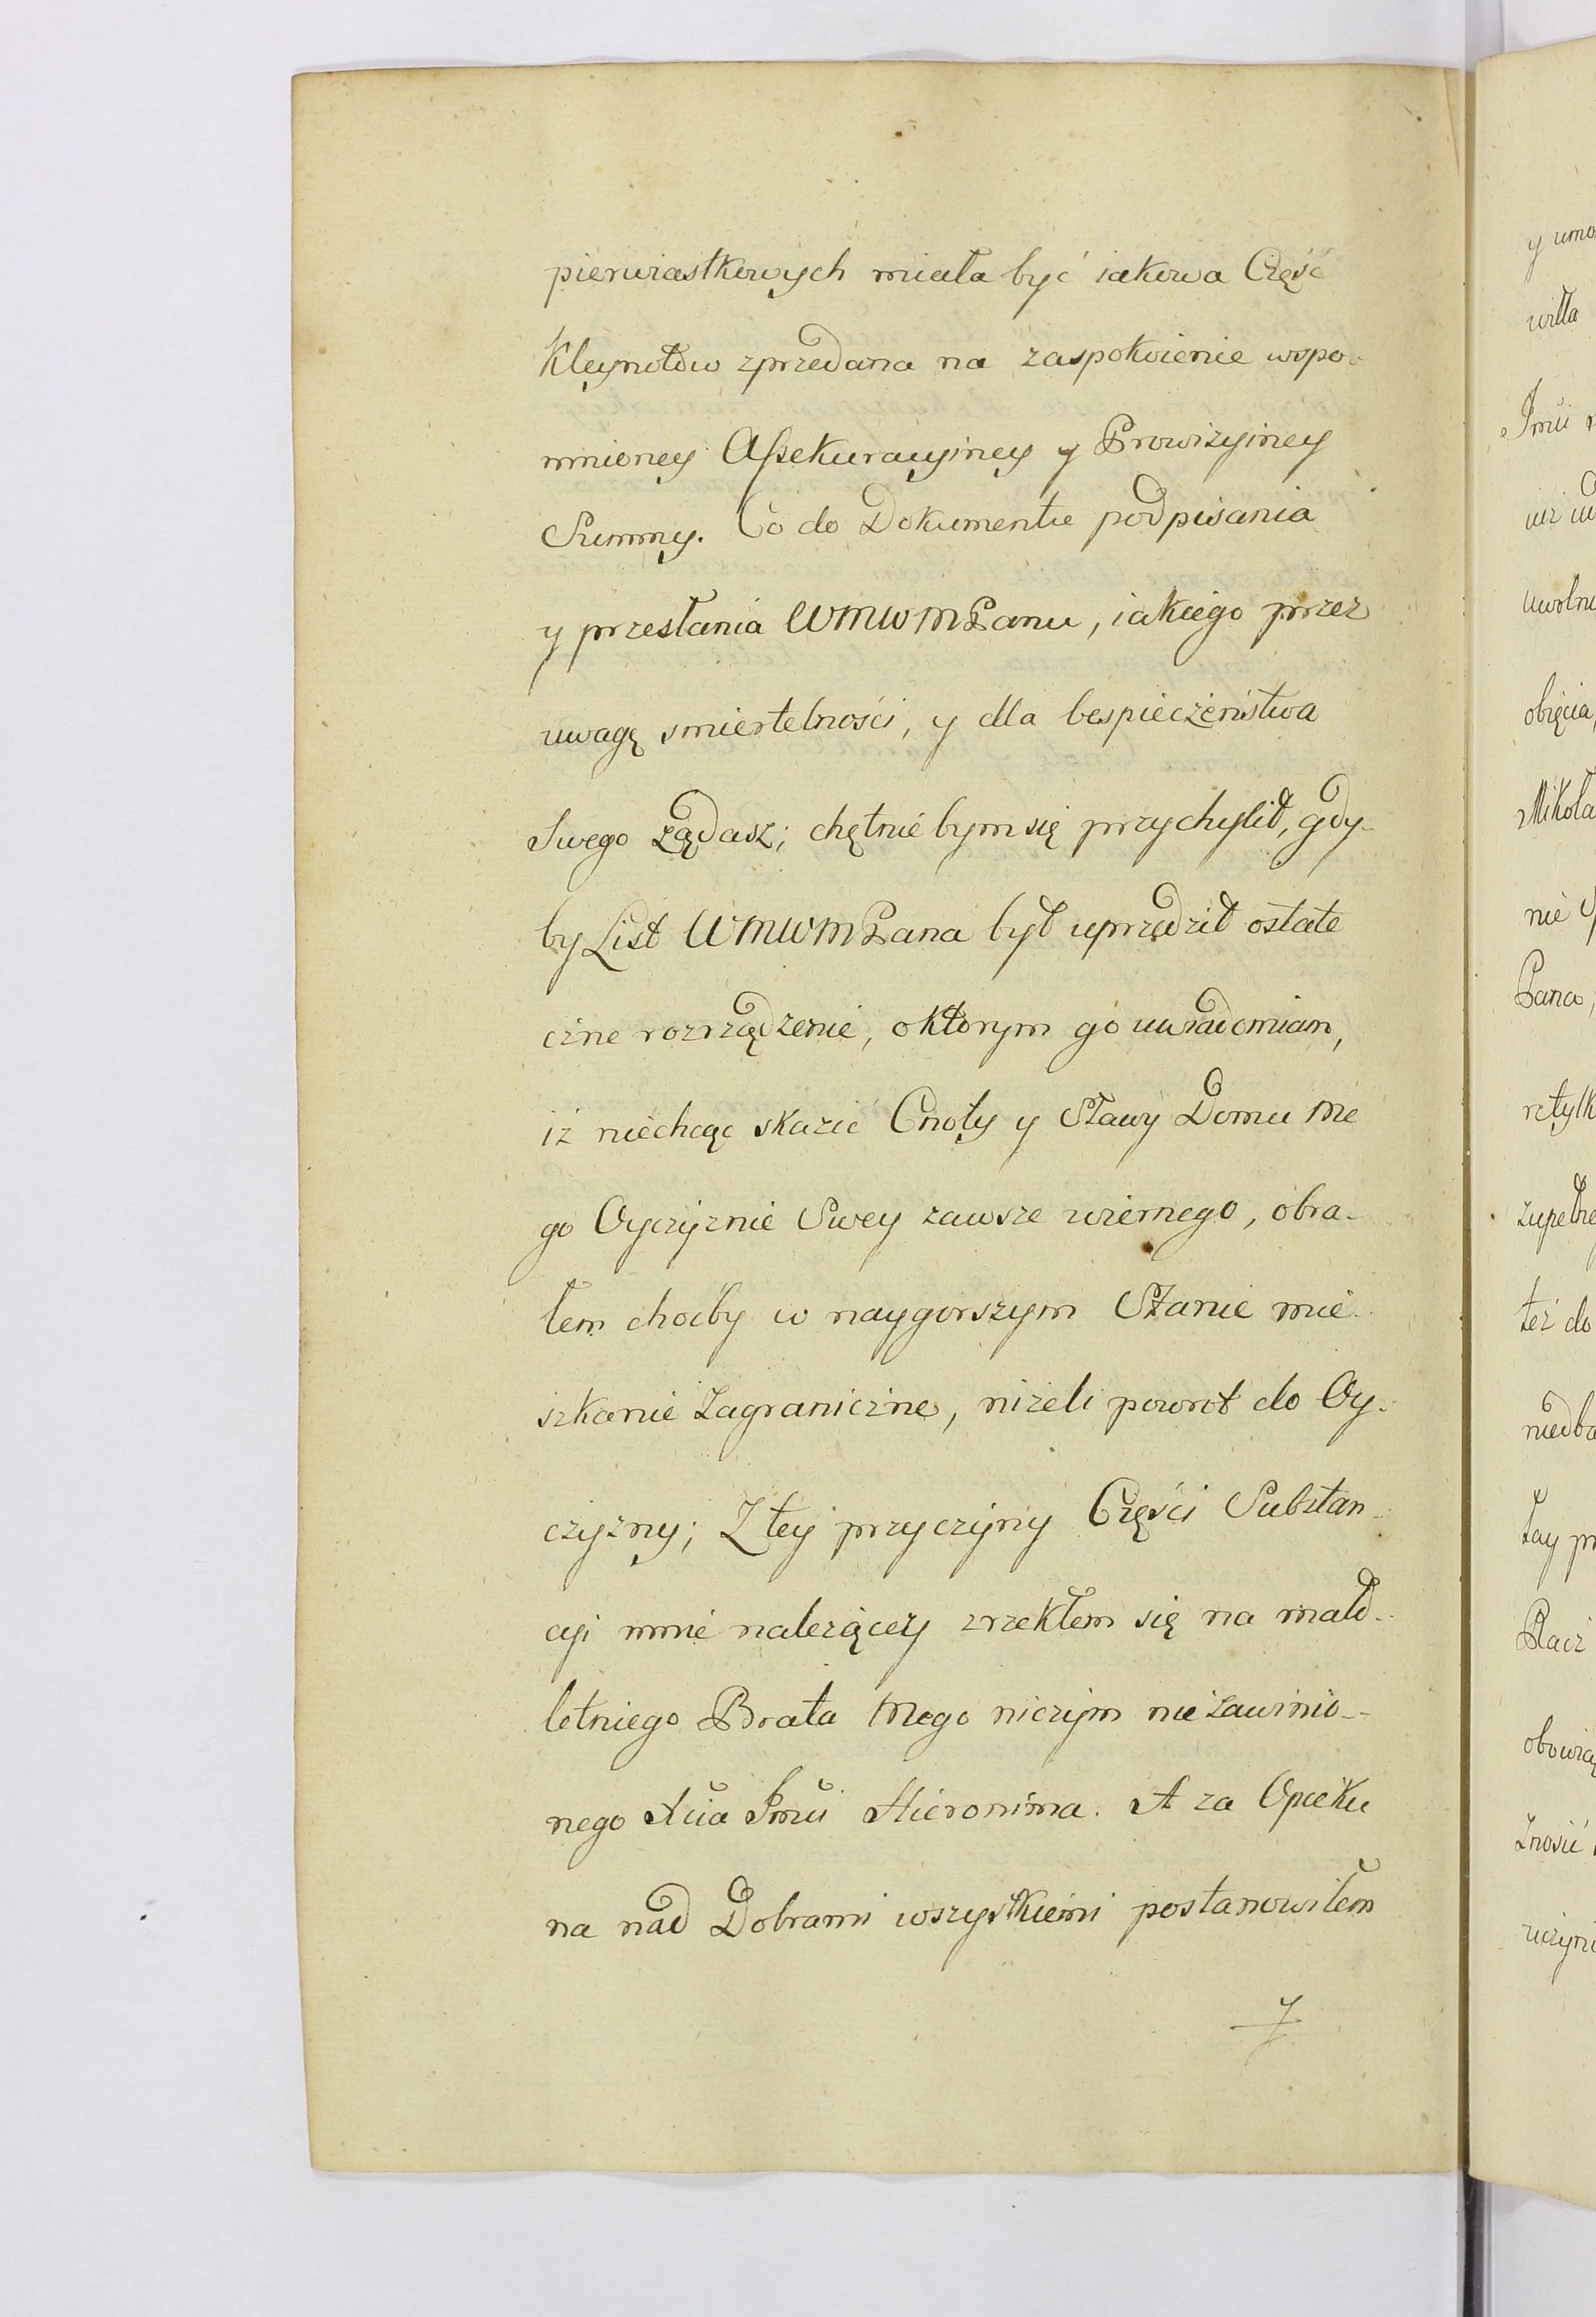 pierwiastkowych miała być iakowa Część
Kleynotów zprzedana na zaspokoienie wspo-
mnioney Assekuracyiney y Prowizyiney
Summy. Co do Dokumentu podpisania
y przesłania WMWMPanu, iakiego przez
uwagę smiertelności, y dla bespieczeństwa
Swego żądasz; chętnie bym się przychylił, gdy-
by List WMWMPana był uprzedził ostate
czne rozrządzenie, o którym go uwiadomiam,
iż niechcąc skazić Cnoty y Sławy Domu Me
go Oyczyznie Swey zawsze wiernego, obra-
łem choćby w naygorszym Stanie mie-
szkanie Zagraniczne, niżeli powrot do Oy-
czyzny; Z tey przyczyny Części Substan-
cyi mnie należącey zrzekłem się na mało-
letniego Brata Mego niczym nie zawinio-
nego Xcia Jmci Hieronima. A za Opieku
na nad Dobrami wszystkiemi postanowiłem
y
y umo
wiłła
Jmci
uwolni
obięcia,
Mikoła
nie
Pana,
ztylk
zupełne
też do
niedba
Racz
obowią
Znosić
uczyni